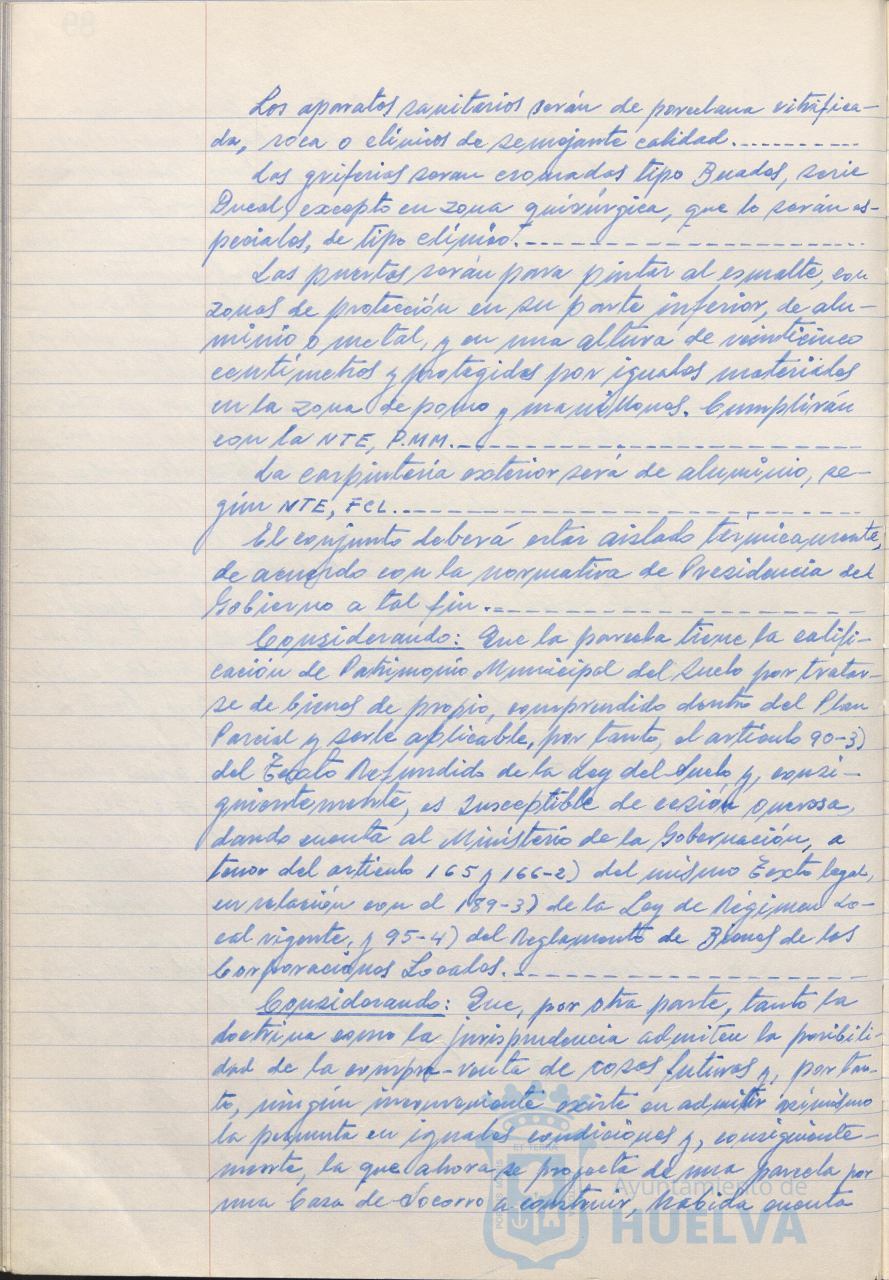 Los aparatos sanitarios serán de porcelana vitrifica-
da, roca o clínicos de semejante calidad.
Las griferías seran cromadas tipo Buades, serie
Ducal, excepto en zona quirúrgica, que lo serán es-
peciales, de tipo clínico.
Las puertas serán para pintar al esmalte, con
zonas de protección en su parte inferior, de alu-
minio o metal, y en una altura de veinticinco
centímetros y protegidas por iguales materiales
en la zona de pomo y manillones. Cumplirán
con la NTE, P.MM.
La carpintería exterior será de aluminio, se-
gún NTE, FCL.
El conjunto deberá estar aislado térmicamente,
de acuerdo con la normativa de Presidencia del
Gobierno a tal fin.
Considerando: Que la parcela tiene la califi-
cación de Patrimonio Municipal del Suelo por tratar-
se de bienes de propio, comprendido dentro del Plan
Parcial y serle aplicable, por tanto, el artículo 90-3)
del Texto Refundido de la Ley del Suelo y, consi-
guientemente, es susceptible de cesión onerosa,
dando cuenta al Ministerio de la Gobernación, a
tenor del artículo 165 y 166-2) del mismo Texto legal,
en relación con el 189-3) de la Ley de Régimen Lo-
cal vigente, y 95-4) del Reglamento de Bienes de las
Corporaciones Locales.
Considerando: Que, por otra parte, tanto la
doctrina como la jurisprudencia admiten la posibili-
dad de la compra-venta de cosas futuras y, por tan-
to, ningún inconveniente existe en admitir asimismo
la permuta en iguales condiciones y, consiguiente-
mente, la que ahora se proyecta de una parcela por
una Casa de Socorro a construir, habida cuenta
Ayuntamiento de
HUELVA